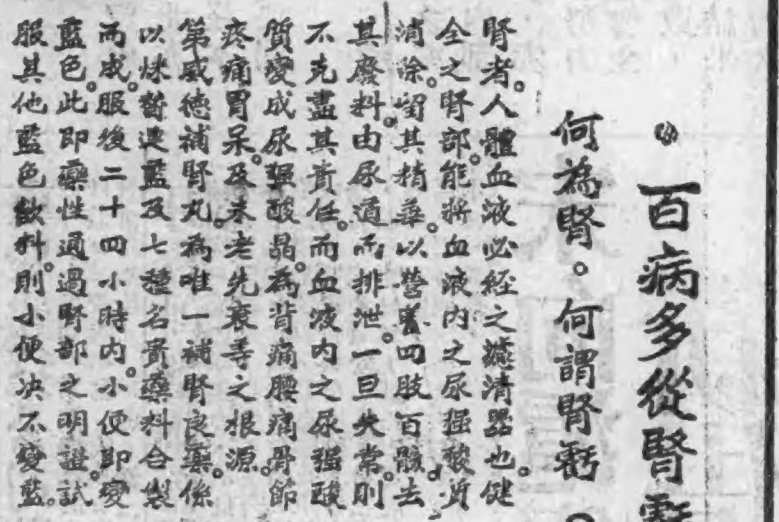 百病多從腎虧
何為腎。何謂腎虧。
腎者。人體血液必經之濾清器也。健
全之腎部。能將血液內之尿强酸質
消除。留其精華。以營養四肢百骸。去
其廢料。由尿道而排泄。一旦失常。則
不克盡其責任。而血液內之尿强酸
質變成尿强酸晶。為背痛腰痛骨節
疼痛胃呆。及未老先衰等之根源。
第威德補腎丸。為唯一補腎良藥。係
以炑晳逃藍及七種名貴藥料合製
而成。服後二十四小時內。小便即變
藍色。此即藥性通過腎部之明證。試
服其他藍色飲料。則小便决不變藍。